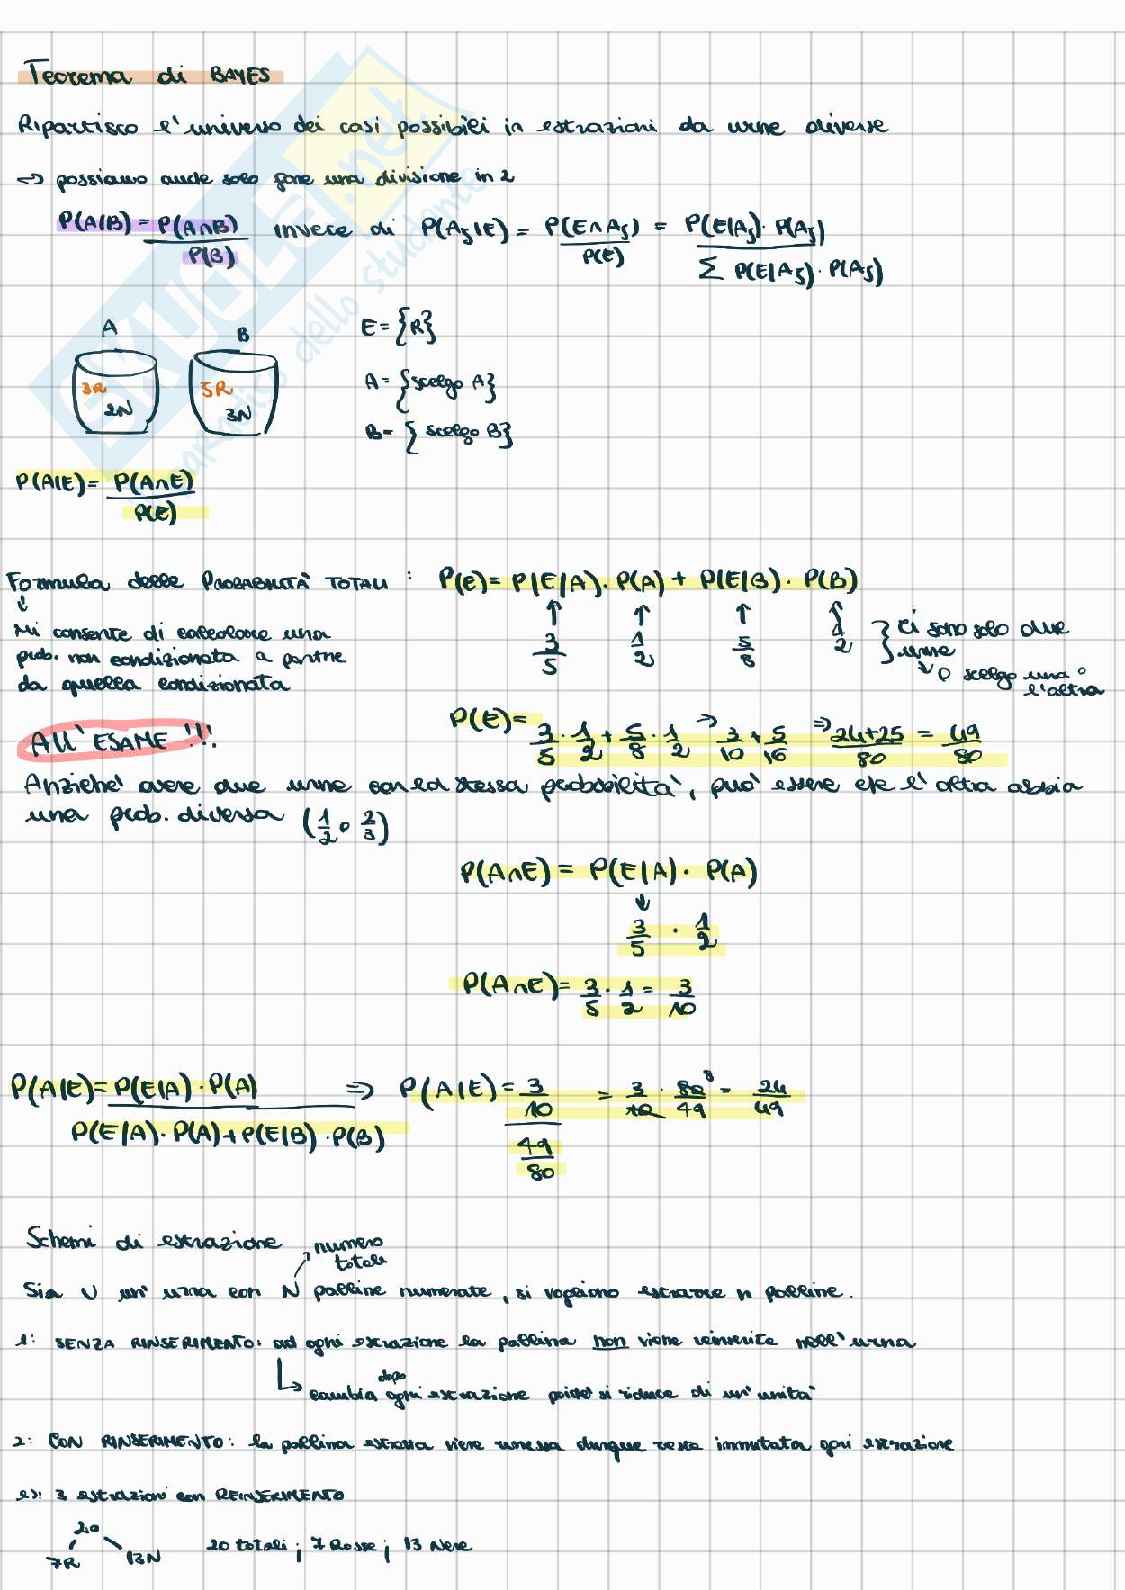 Teorema di BAYES
Ripartisco l'universo dei casi possibili in estrazioni da urne diverse
↪ possiamo anche solo fare una divisione in 2
P(A|B) = P(A∩B) / P(B) invece di P(A_j|E) = P(E∩A_j) / P(E) = P(E|A_j)·P(A_j) / Σ P(E|A_j)·P(A_j)
A B
E = {R}
3R 2N
5R 3N
A = {scelgo A}
B = {scelgo B}
P(A|E) = P(A∩E) / P(E)
Formula delle PROBABILITÀ TOTALI : P(E) = P(E|A)·P(A) + P(E|B)·P(B)
↓ Mi consente di calcolare una
prob. non condizionata a partire
da quella condizionata
↑ 3/5 ↑ 1/2 ↑ 5/8 ↑ 1/2 } ci sono solo due
urne
↳ o scelgo una o
l'altra
P(E) = 3/5 · 1/2 + 5/8 · 1/2 ⇒ 3/10 + 5/16 ⇒ 24+25/80 = 49/80
All'ESAME !!!
Anziché avere due urne con la stessa probabilità, può essere che l'altra abbia
una prob. diversa (1/2 o 2/3)
P(A∩E) = P(E|A)· P(A)
↓
3/5 · 1/2
P(A∩E) = 3/5 · 1/2 = 3/10
P(A|E) = P(E|A)·P(A) / P(E|A)·P(A)+P(E|B)·P(B) ⇒ P(A|E) = 3/10 / 49/80 = 3/10 · 80/49 = 24/49
8
Schemi di estrazione
numero
totale
Sia U un'urna con N palline numerate, si vogliono estrarre n palline.
1: SENZA RINSERIMENTO: ad ogni estrazione la pallina non viene reinserita nell'urna
dopo
↳ cambia ogni estrazione poiché si riduce di un'unità
2: CON RINSERIMENTO: la pallina estratta viene rimessa dunque resta immutata ogni estrazione
es: 3 estrazioni con REINSERIMENTO
20
7R 13N
20 totali ; 7 Rosse ; 13 Nere